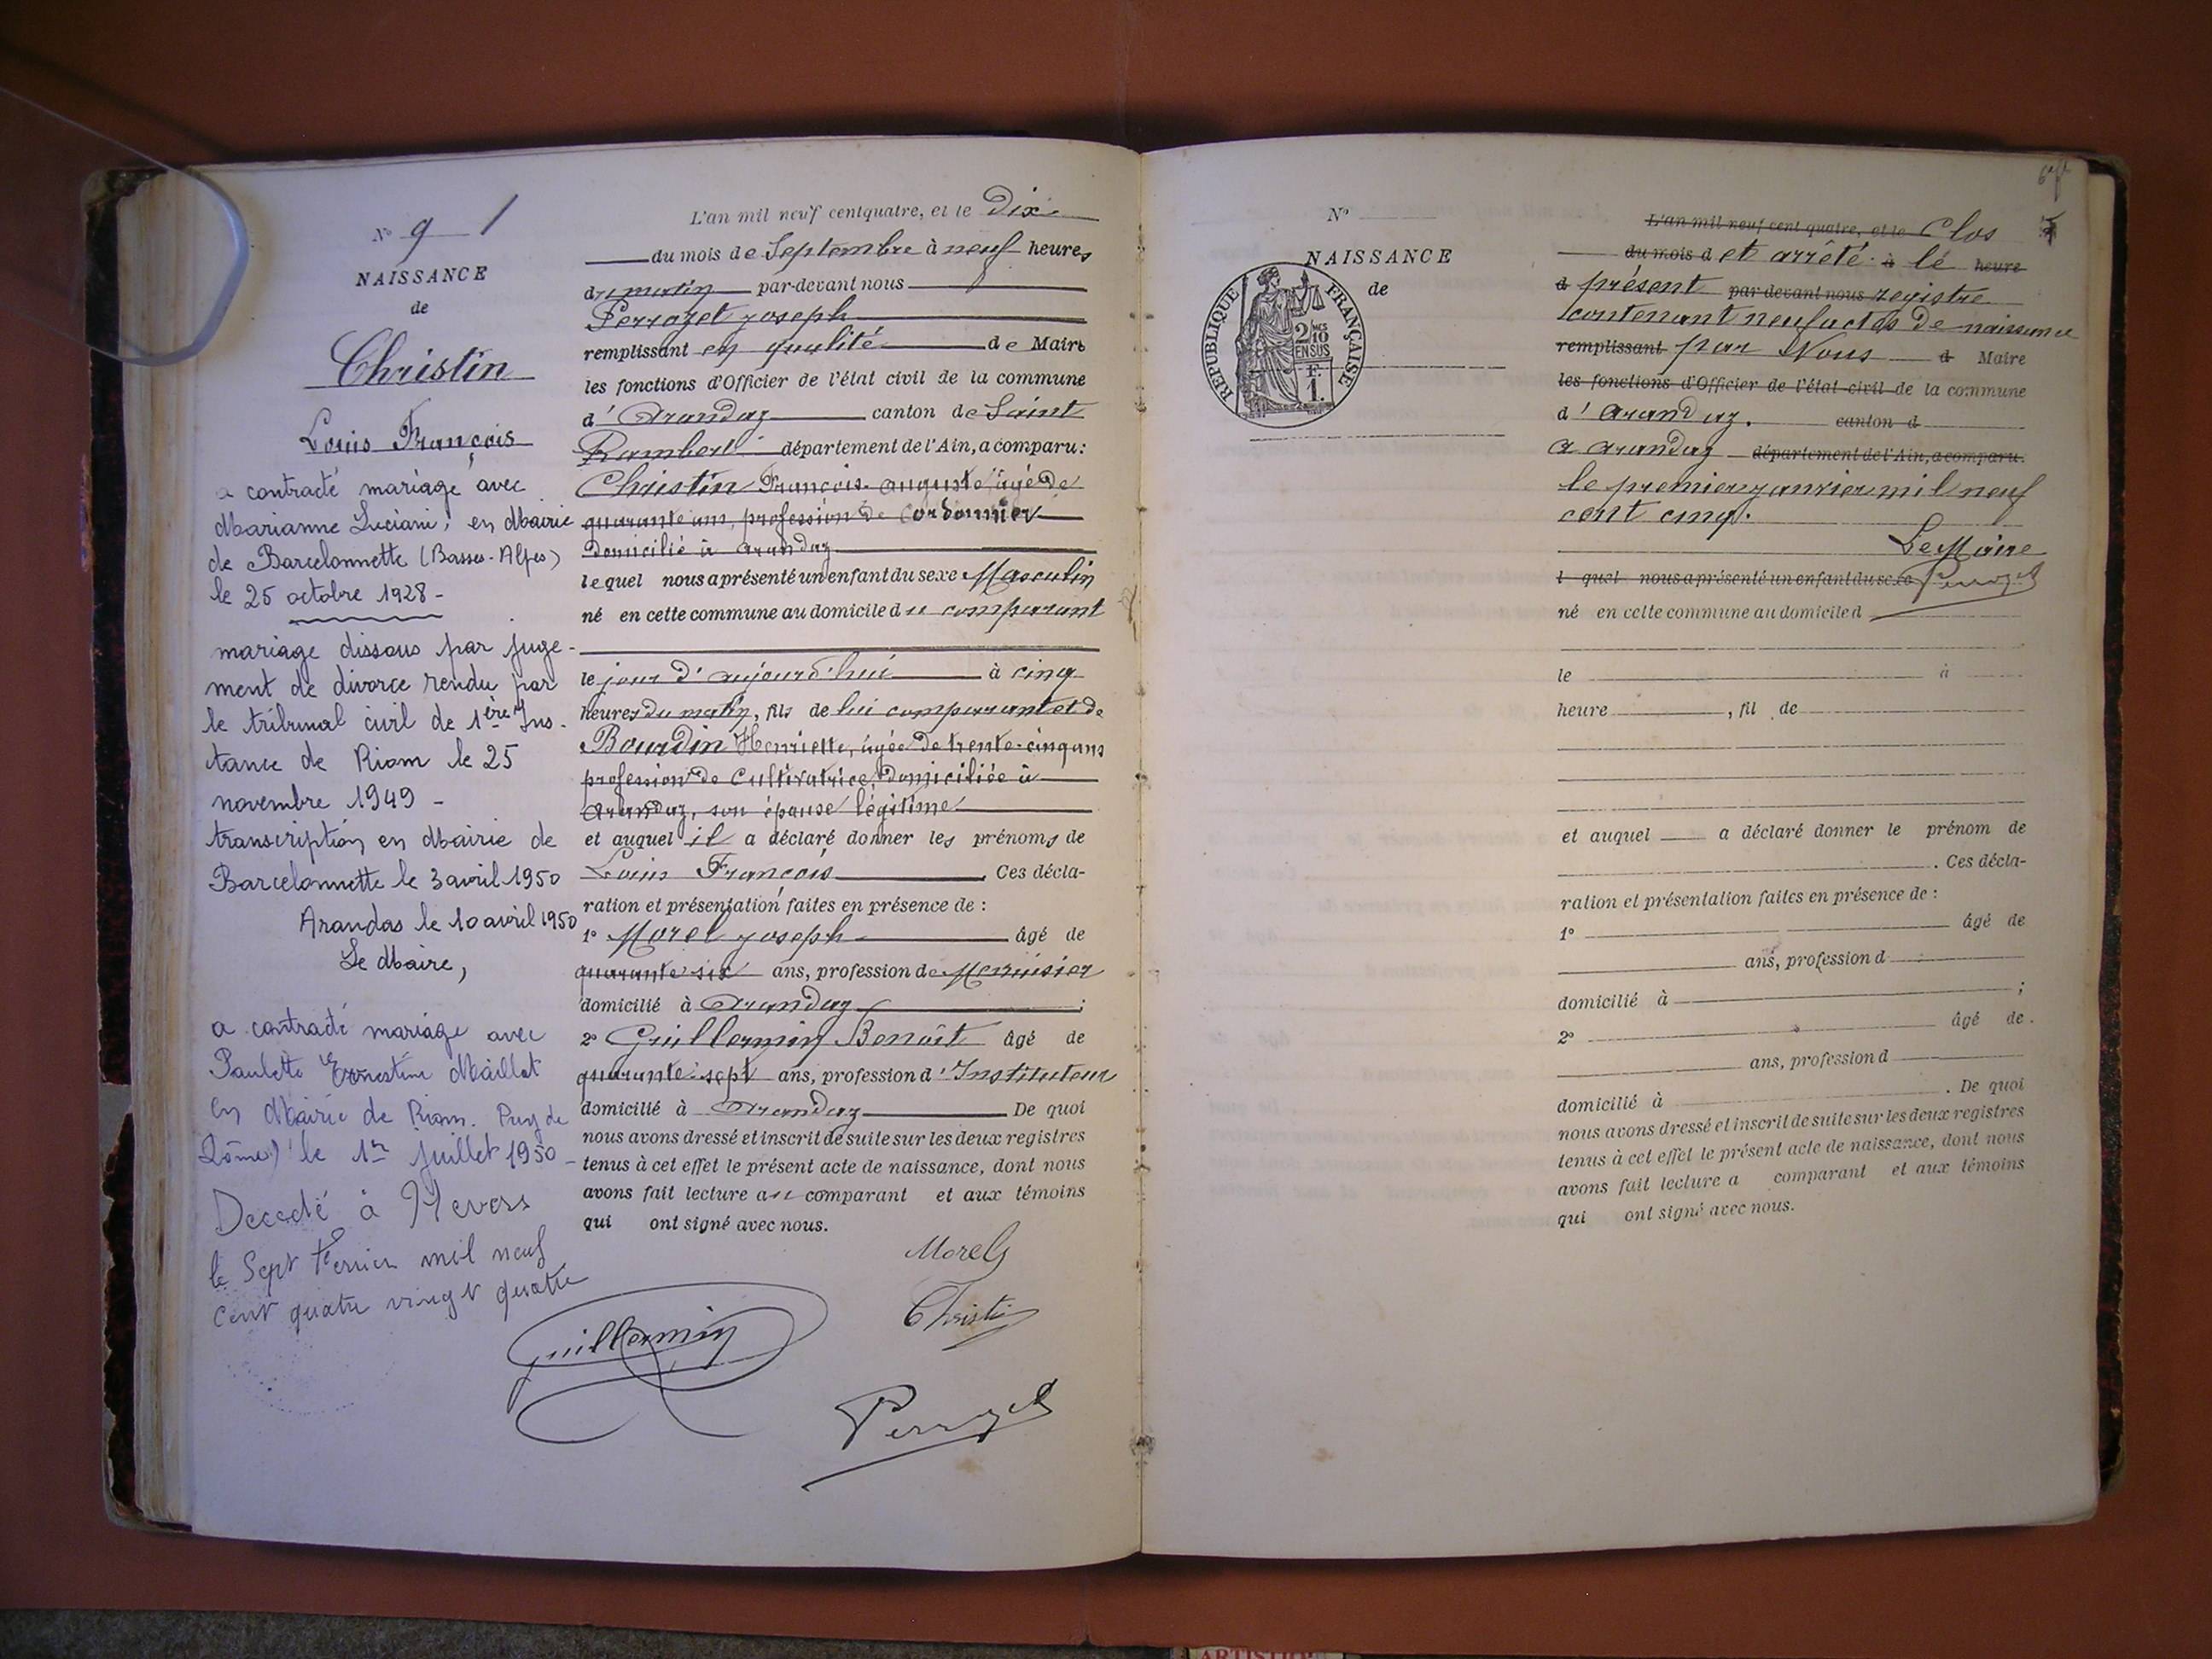 N° 9 1
NAISSANCE
de
Christin
Louis François
a contracté mariage avec
Marianne Luciani, en Mairie
de Barcelonnette (Basses-Alpes)
le 25 octobre 1928 -
mariage dissous par juge-
ment de divorce rendu par
le tribunal civil de 1ère Ins-
tance de Riom le 25
novembre 1949 -
transcription en Mairie de
Barcelonnette le 3 avril 1950
Arandas le 10 avril 1950
Le Maire,
a contracté mariage avec
Paulette Ernestine Maillet
en Mairie de Riom. Puy de
Dôme) le 1er juillet 1950 -
Decedé à Nevers
le Sept Fevrier mil neuf
cent quatre vingt quatre
L'an mil neuf cent quatre, et le Dix
du mois de Septembre à neuf heures
du matin par-devant nous
Perrozet Joseph
remplissant en qualité de Maire
les fonctions d'Officier de l'état civil de la commune
d'Arandaz canton de Saint
Rambert département de l'Ain, a comparu:
Christin François auguste âgé de
quarante ans, profession de Cordonnier
domicilié à Arandaz
lequel nous a présenté un enfant du sexe Masculin
né en cette commune au domicile du comparant
le jour d'aujourd'hui à cinq
heures du matin, fils de lui comparant et de
Bourdin Henriette, âgée de trente-cinq ans
profession de Cultivatrice, domiciliée à
Arandaz, son épouse légitime
et auquel il a déclaré donner les prénoms de
Louis François Ces décla-
ration et présentation faites en présence de :
1° Morel Joseph âgé de
quarante six ans, profession de Menuisier
domicilié à Arandaz ;
2° Guillermin Benoît âgé de
quarante-sept ans, profession d'Instituteur
domicilié à Arandaz De quoi
nous avons dressé et inscrit de suite sur les deux registres
tenus à cet effet le présent acte de naissance, dont nous
avons fait lecture au comparant et aux témoins
qui ont signé avec nous.
Morel J
Christin
Guillermin
Perrozet
N°
NAISSANCE
de
REPUBLIQUE FRANÇAISE
2/10 MES
EN SUS
F.
1.
L'an mil neuf cent quatre, et le Clos
du mois d et arrêté à le heure
d présent par-devant nous registre
contenant neuf actes de naissance
remplissant par Nous d Maire
les fonctions d'Officier de l'état civil de la commune
d'Arandaz. canton d
A Arandaz département de l'Ain, a comparu.
le premier janvier mil neuf
cent cinq.
Le Maire
l quel nous a présenté un enfant du sexe Perrozet
né en cette commune au domicile d
le à
heure , fil de
et auquel a déclaré donner le prénom de
. Ces décla-
ration et présentation faites en présence de :
1° âgé de
ans, profession d
domicilié à ;
2° âgé de
ans, profession d
domicilié à . De quoi
nous avons dressé et inscrit de suite sur les deux registres
tenus à cet effet le présent acte de naissance, dont nous
avons fait lecture a comparant et aux témoins
qui ont signé avec nous.